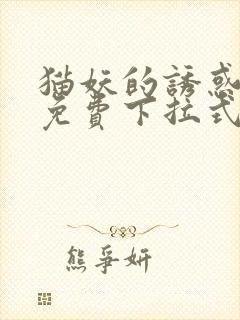 猫妖的誘惑
免費下拉式
熊爭妍